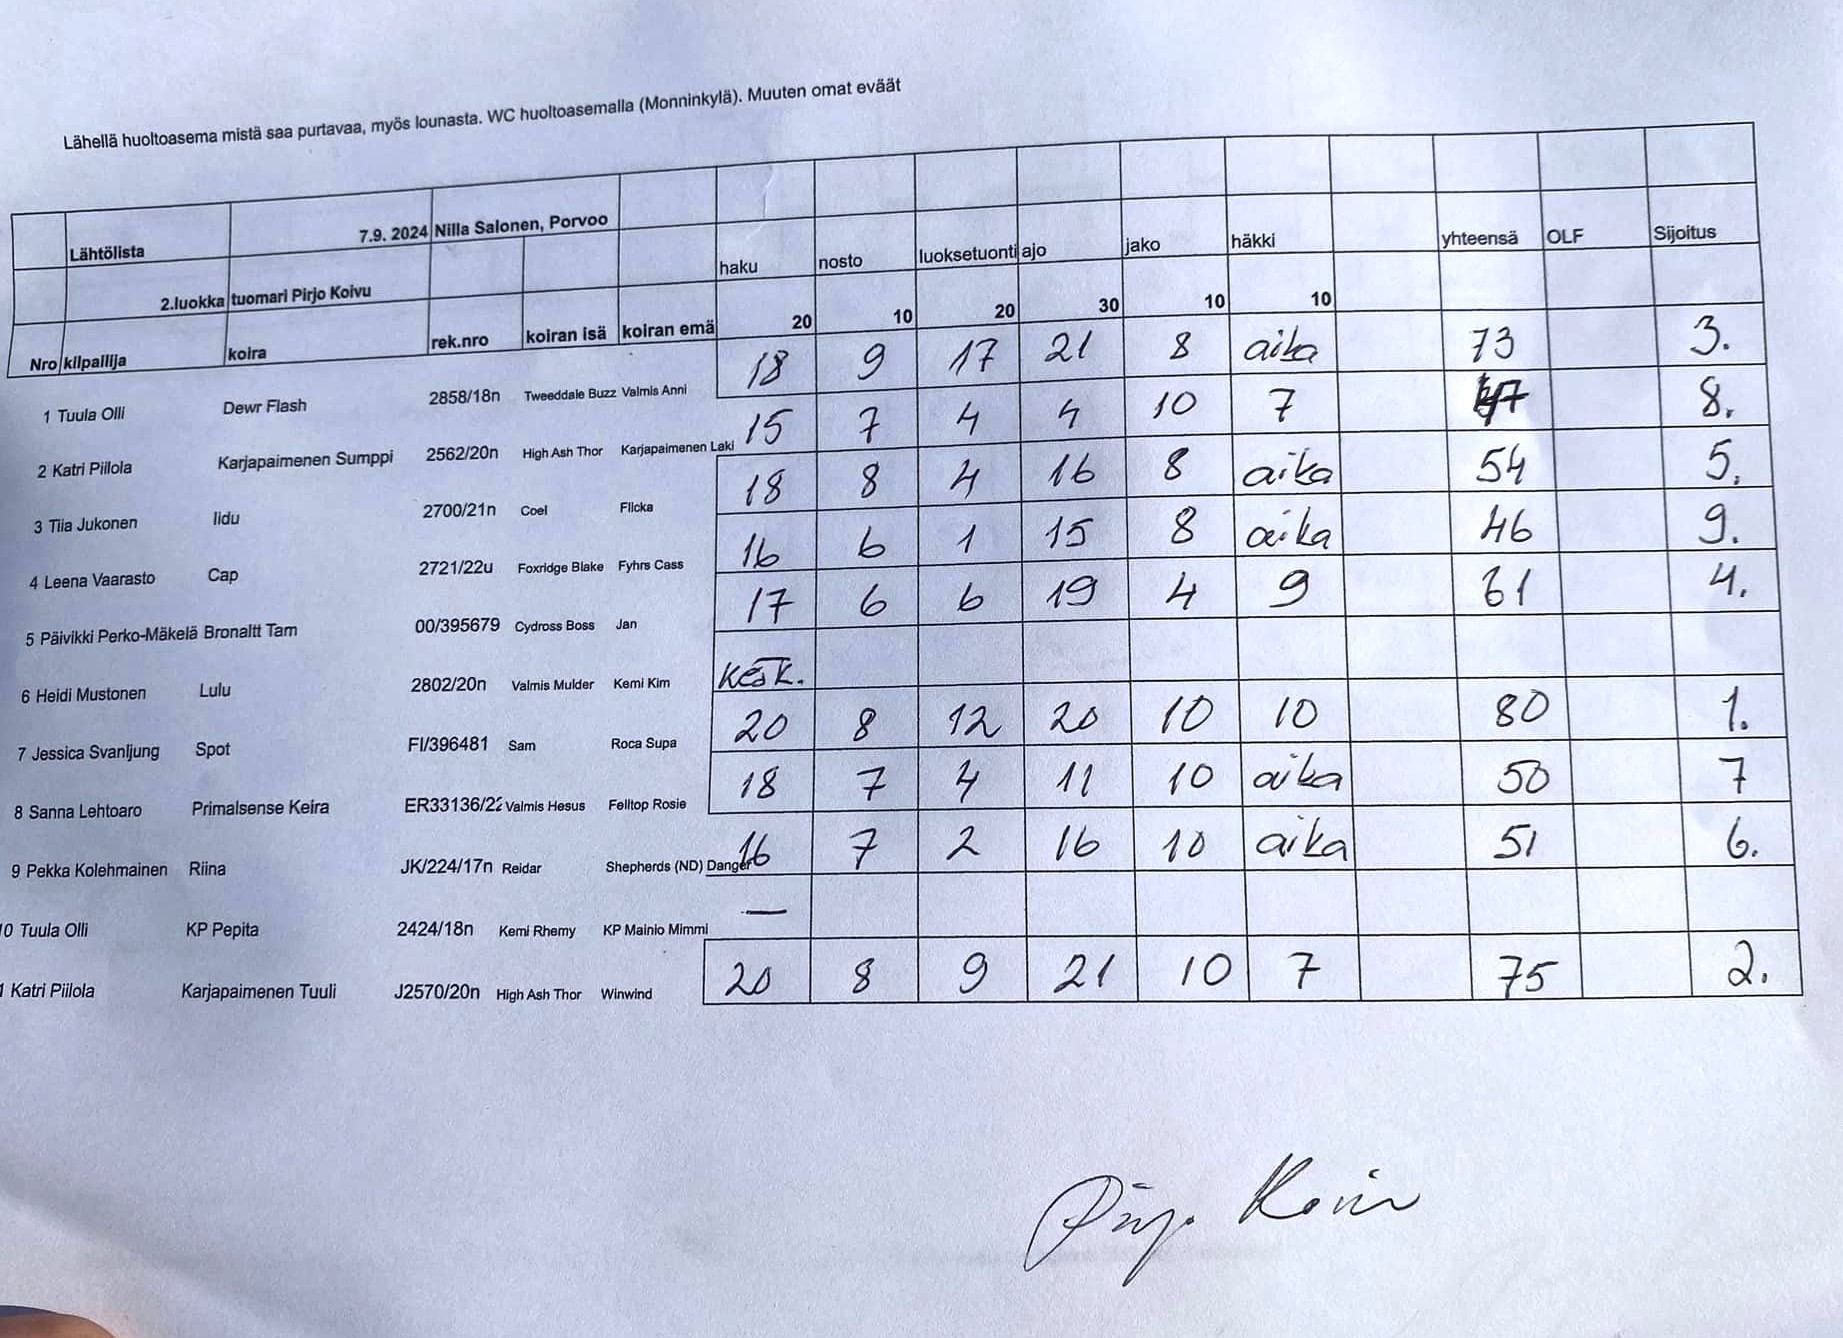 Lähellä huoltoasema mistä saa purtavaa, myös lounasta. WC huoltoasemalla (Monninkylä). Muuten omat eväät
Lähtölista 7.9. 2024 Nilla Salonen, Porvoo haku nosto luoksetuonti ajo jako häkki yhteensä OLF Sijoitus
2.luokka tuomari Pirjo Koivu 20 10 20 30 10 10
Nro kilpailija koira rek.nro koiran isä koiran emä
1 Tuula Olli Dewr Flash 2858/18n Tweeddale Buzz Valmis Anni 18 9 17 21 8 aika 73 3.
2 Katri Piilola Karjapaimenen Sumppi 2562/20n High Ash Thor Karjapaimenen Laki 15 7 4 4 10 7 47 8.
3 Tiia Jukonen Iidu 2700/21n Coel Flicka 18 8 4 16 8 aika 54 5.
4 Leena Vaarasto Cap 2721/22u Foxridge Blake Fyhrs Cass 16 6 1 15 8 aika 46 9.
5 Päivikki Perko-Mäkelä Bronaltt Tam 00/395679 Cydross Boss Jan 17 6 6 19 4 9 61 4.
6 Heidi Mustonen Lulu 2802/20n Valmis Mulder Kemi Kim kesk.
7 Jessica Svanljung Spot FI/396481 Sam Roca Supa 20 8 12 20 10 10 80 1.
8 Sanna Lehtoaro Primalsense Keira ER33136/22 Valmis Hesus Felltop Rosie 18 7 4 11 10 aika 50 7
9 Pekka Kolehmainen Riina JK/224/17n Reidar Shepherds (ND) Danger 16 7 2 16 10 aika 51 6.
10 Tuula Olli KP Pepita 2424/18n Kemi Rhemy KP Mainio Mimmi —
1 Katri Piilola Karjapaimenen Tuuli J2570/20n High Ash Thor Winwind 20 8 9 21 10 7 75 2.
Pirjo Koivu